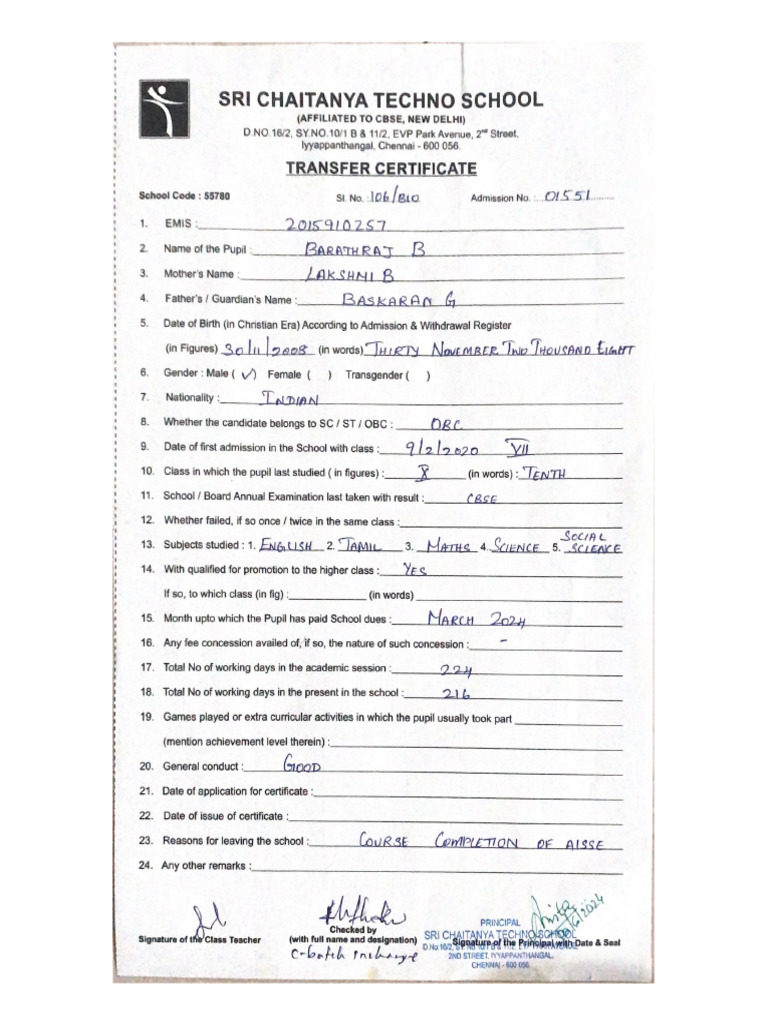 SRI CHAITANYA TECHNO SCHOOL
(AFFILIATED TO CBSE, NEW DELHI)
D.NO.16/2, SY.NO.10/1 B & 11/2, EVP Park Avenue, 2nd Street,
Iyyappanthangal, Chennai - 600 056.
TRANSFER CERTIFICATE
School Code : 55780 Sl. No. : 106/B10 Admission No. : 01551
1. EMIS : 2015910257
2. Name of the Pupil : BARATHRAJ B
3. Mother's Name : LAKSHMI B
4. Father's / Guardian's Name : BASKARAN G
5. Date of Birth (in Christian Era) According to Admission & Withdrawal Register
(in Figures) 30/11/2008 (in words) THIRTY NOVEMBER TWO THOUSAND EIGHT
6. Gender : Male ( ✓ ) Female ( ) Transgender ( )
7. Nationality : INDIAN
8. Whether the candidate belongs to SC / ST / OBC : OBC
9. Date of first admission in the School with class : 9/2/2020 VII
10. Class in which the pupil last studied ( in figures) : X (in words) : TENTH
11. School / Board Annual Examination last taken with result : CBSE
12. Whether failed, if so once / twice in the same class :
13. Subjects studied : 1. ENGLISH 2. TAMIL 3. MATHS 4. SCIENCE 5. SOCIAL SCIENCE
14. With qualified for promotion to the higher class : YES
If so, to which class (in fig) : (in words)
15. Month upto which the Pupil has paid School dues : MARCH 2024
16. Any fee concession availed of, if so, the nature of such concession : -
17. Total No of working days in the academic session : 224
18. Total No of working days in the present in the school : 216
19. Games played or extra curricular activities in which the pupil usually took part
(mention achievement level therein) :
20. General conduct : GOOD
21. Date of application for certificate :
22. Date of issue of certificate :
23. Reasons for leaving the school : COURSE COMPLETION OF AISSE
24. Any other remarks :
PRINCIPAL
SRI CHAITANYA TECHNO SCHOOL
Checked by
Signature of the Class Teacher (with full name and designation) Signature of the Principal with Date & Seal
C-batch incharge
2ND STREET, IYYAPPANTHANGAL,
CHENNAI - 600 056.